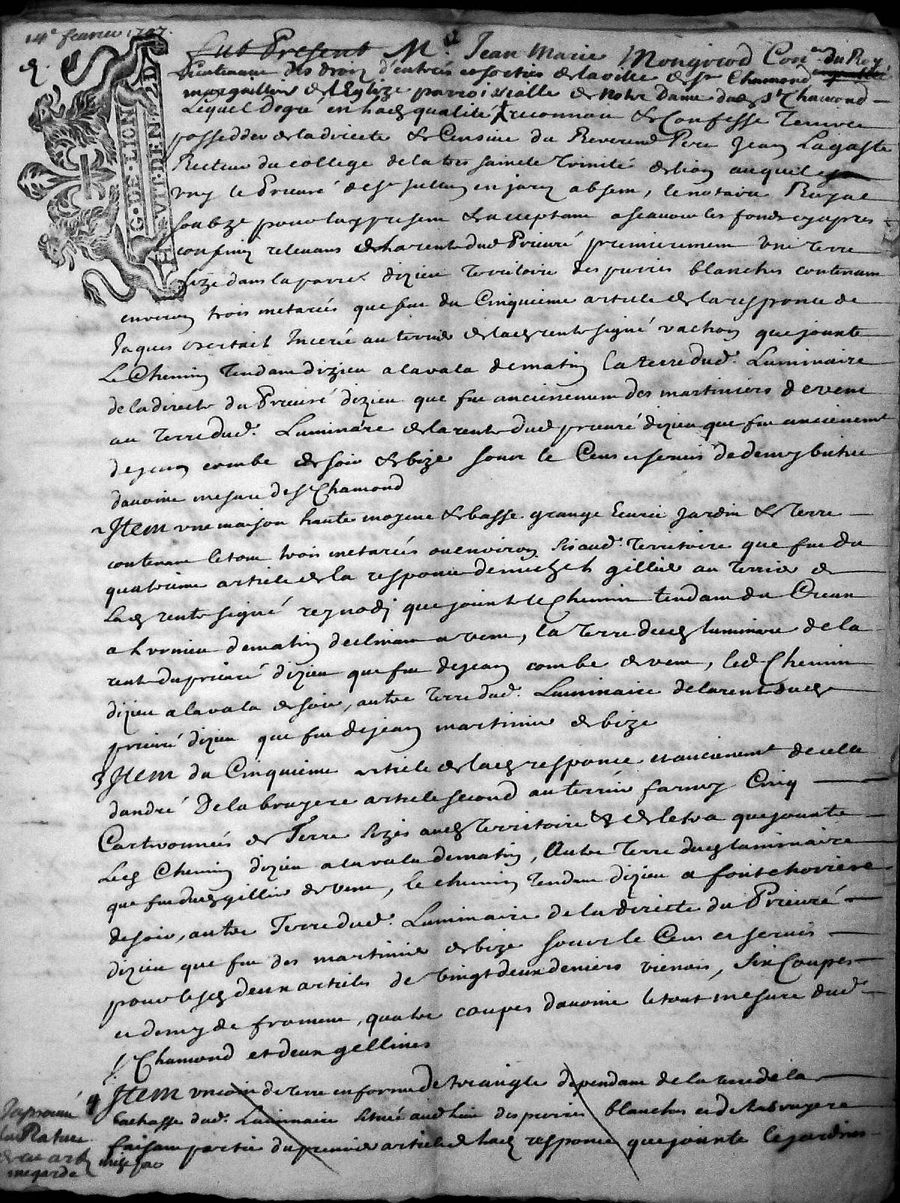 14e fevrier 1727.
G. DE LION
Fut Present Mr Jean Marie Mongirod Conr du Roy
Lieutenant des droits d'entrée et sorties de la ville de St Chamond
marguillier de l'Eglize parroissialle de notre Dame dud St Chamond
Lequel de gré en lad qualité reconnait & Confesse Tenir et
posseder de la directe & Censive du Reverend Pere Jean Lagaste
Recteur du college de la tres saincte Trinité de lion auquel est
uny le Prieuré de St Julien en jarez absent, le notaire Royal
soubzé pour luy present & aceptant a scavoir les fonds cy apres
confinez relevans de la rente dud Prieuré premierement une Terre
size dans la parre dizieu Territoire des pierres blanches contenant
environ trois metarées que fut du Cinquieme article de la responce de
Jaques Inceré au terrier de lad rente signé vachon que jouxte
Le Chemin Tendant dizieu a lavala de matin la terre dud. Luminaire
de la directe du Prieuré dizieu que fut anciennement des martiniers de vent
au Terre dud. Luminaire de la rente dud prieuré dizieu que fut anciennement
de jean combe de soir & de bize soubz le Cens et servis de demy bichet
davoine mesure de St Chamond
2 Item une maison haute moyene & basse grange Ecurie jardin & Terre
contenant le tout trois metarées ou environ sis aud. Territoire que fut du
quatrieme article de la responce de michel gillier au Terrier de
Lad rente signé reynodj que joint le Chemin tendant du Creux
a de matin declinant a vent, la Terre dud luminaire de la
rente du prieuré dizieu que fut de jean combe de vent, led Chemin
dizieu a lavala de soir, autre Terre dud. Luminaire de la rente dud
prieuré dizieu que fut de jean martinier de bize
3 Item du Cinquieme article de lad responce et anciennement de celle
dandré De la bruyere article second au terrier farnoy Cinq
Cartonnées de Terre sizes aud Territoire & de que jouxte
Led Chemin dizieu a lavala de matin, Autre Terre dud luminaire
que fut dud gillier de vent, le chemin Tendant dizieu a fontchoriere
de soir, autre Terre dud. Luminaire de la directe du Prieuré
dizieu que fut des martinier de bize soubz le Cens et servis
pour lesd deux articles de vingt deux deniers vienois, six Coupes
et demy de froment, quatre coupes davoine le tout mesure dud
St Chamond et deux gellines
4 Item un coin de terre en forme de triangle dependant de la terre de la
dud. Luminaire situé aud lieu des pierres blanches et de la bruyere
faisant partie du premier article de lad responce que jouxte le jardin
Japrouve
la Rature
de cet arte
mise par
megarde